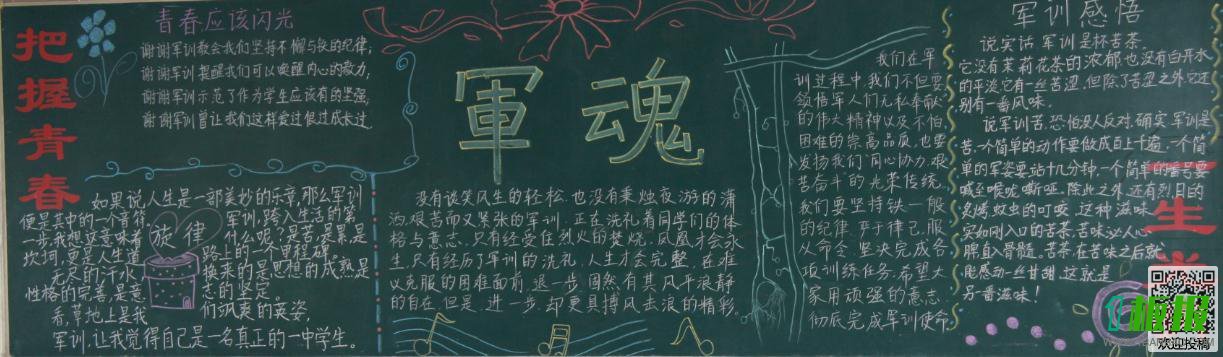 把握青春
青春应该闪光
谢谢军训教会我们坚持不懈与铁的纪律;
谢谢军训提醒我们可以唤醒内心的毅力;
谢谢军训示范了作为学生应该有的坚强;
谢谢军训曾让我们这样爱过恨过成长过
如果说人生是一部美妙的乐章,那么军训
便是其中的一个音符。
军训,跨入生活的第
一步,我想这意味着
什么呢?是苦,是累,是
坎坷,更是人生道
路上的一个里程碑。
无尽的汗水
换来的是思想的成熟是
性格的完善,是意
志的坚定。
系,草地上是我
们飒爽的英姿,
军训,让我觉得自己是一名真正的一中学生。
旋律
軍魂
没有谈笑风生的轻松,也没有秉烛夜游的潇
洒,艰苦而又紧张的军训,正在洗礼着同学们的体
格与意志,只有经受住烈火的焚烧,凤凰才会永
生,只有经历了军训的洗礼,人生才会完整,在难
以克服的困难面前,退一步,固然有其风平浪静
的自在,但是,进一步,却更具搏风击浪的精彩。
我们在军
训过程中,我们不但要
领悟军人们无私奉献
的伟大精神以及不怕
困难的崇高品质,也要
发扬我们同心协力,艰
苦奋斗的光荣传统,
我们要坚持铁一般
的纪律,严于律己,服
从命令,坚决完成各
项训练任务,希望大
家用顽强的意志,
彻底完成军训使命.
军训感悟
说实话,军训是杯苦茶。
它没有茉莉花茶的浓郁,也没有白开水
的平淡,它有一丝苦涩,但除了苦涩之外,它还
别有一番风味。
说军训苦,恐怕没人反对,确实,军训是
苦,一个简单的动作要做成百上千遍,一个简
单的军姿要站十几分钟,一个简单的番号要
喊至喉咙嘶哑,除此之外还有烈日的
炙烤,蚊虫的叮咬,这种滋味
实如刚入口的苦茶,苦味沁人心
脾,直入骨髓,苦茶在苦味之后就
能感动一丝甘甜,这就是
另一番滋味!
一生
1板报
欢迎投稿